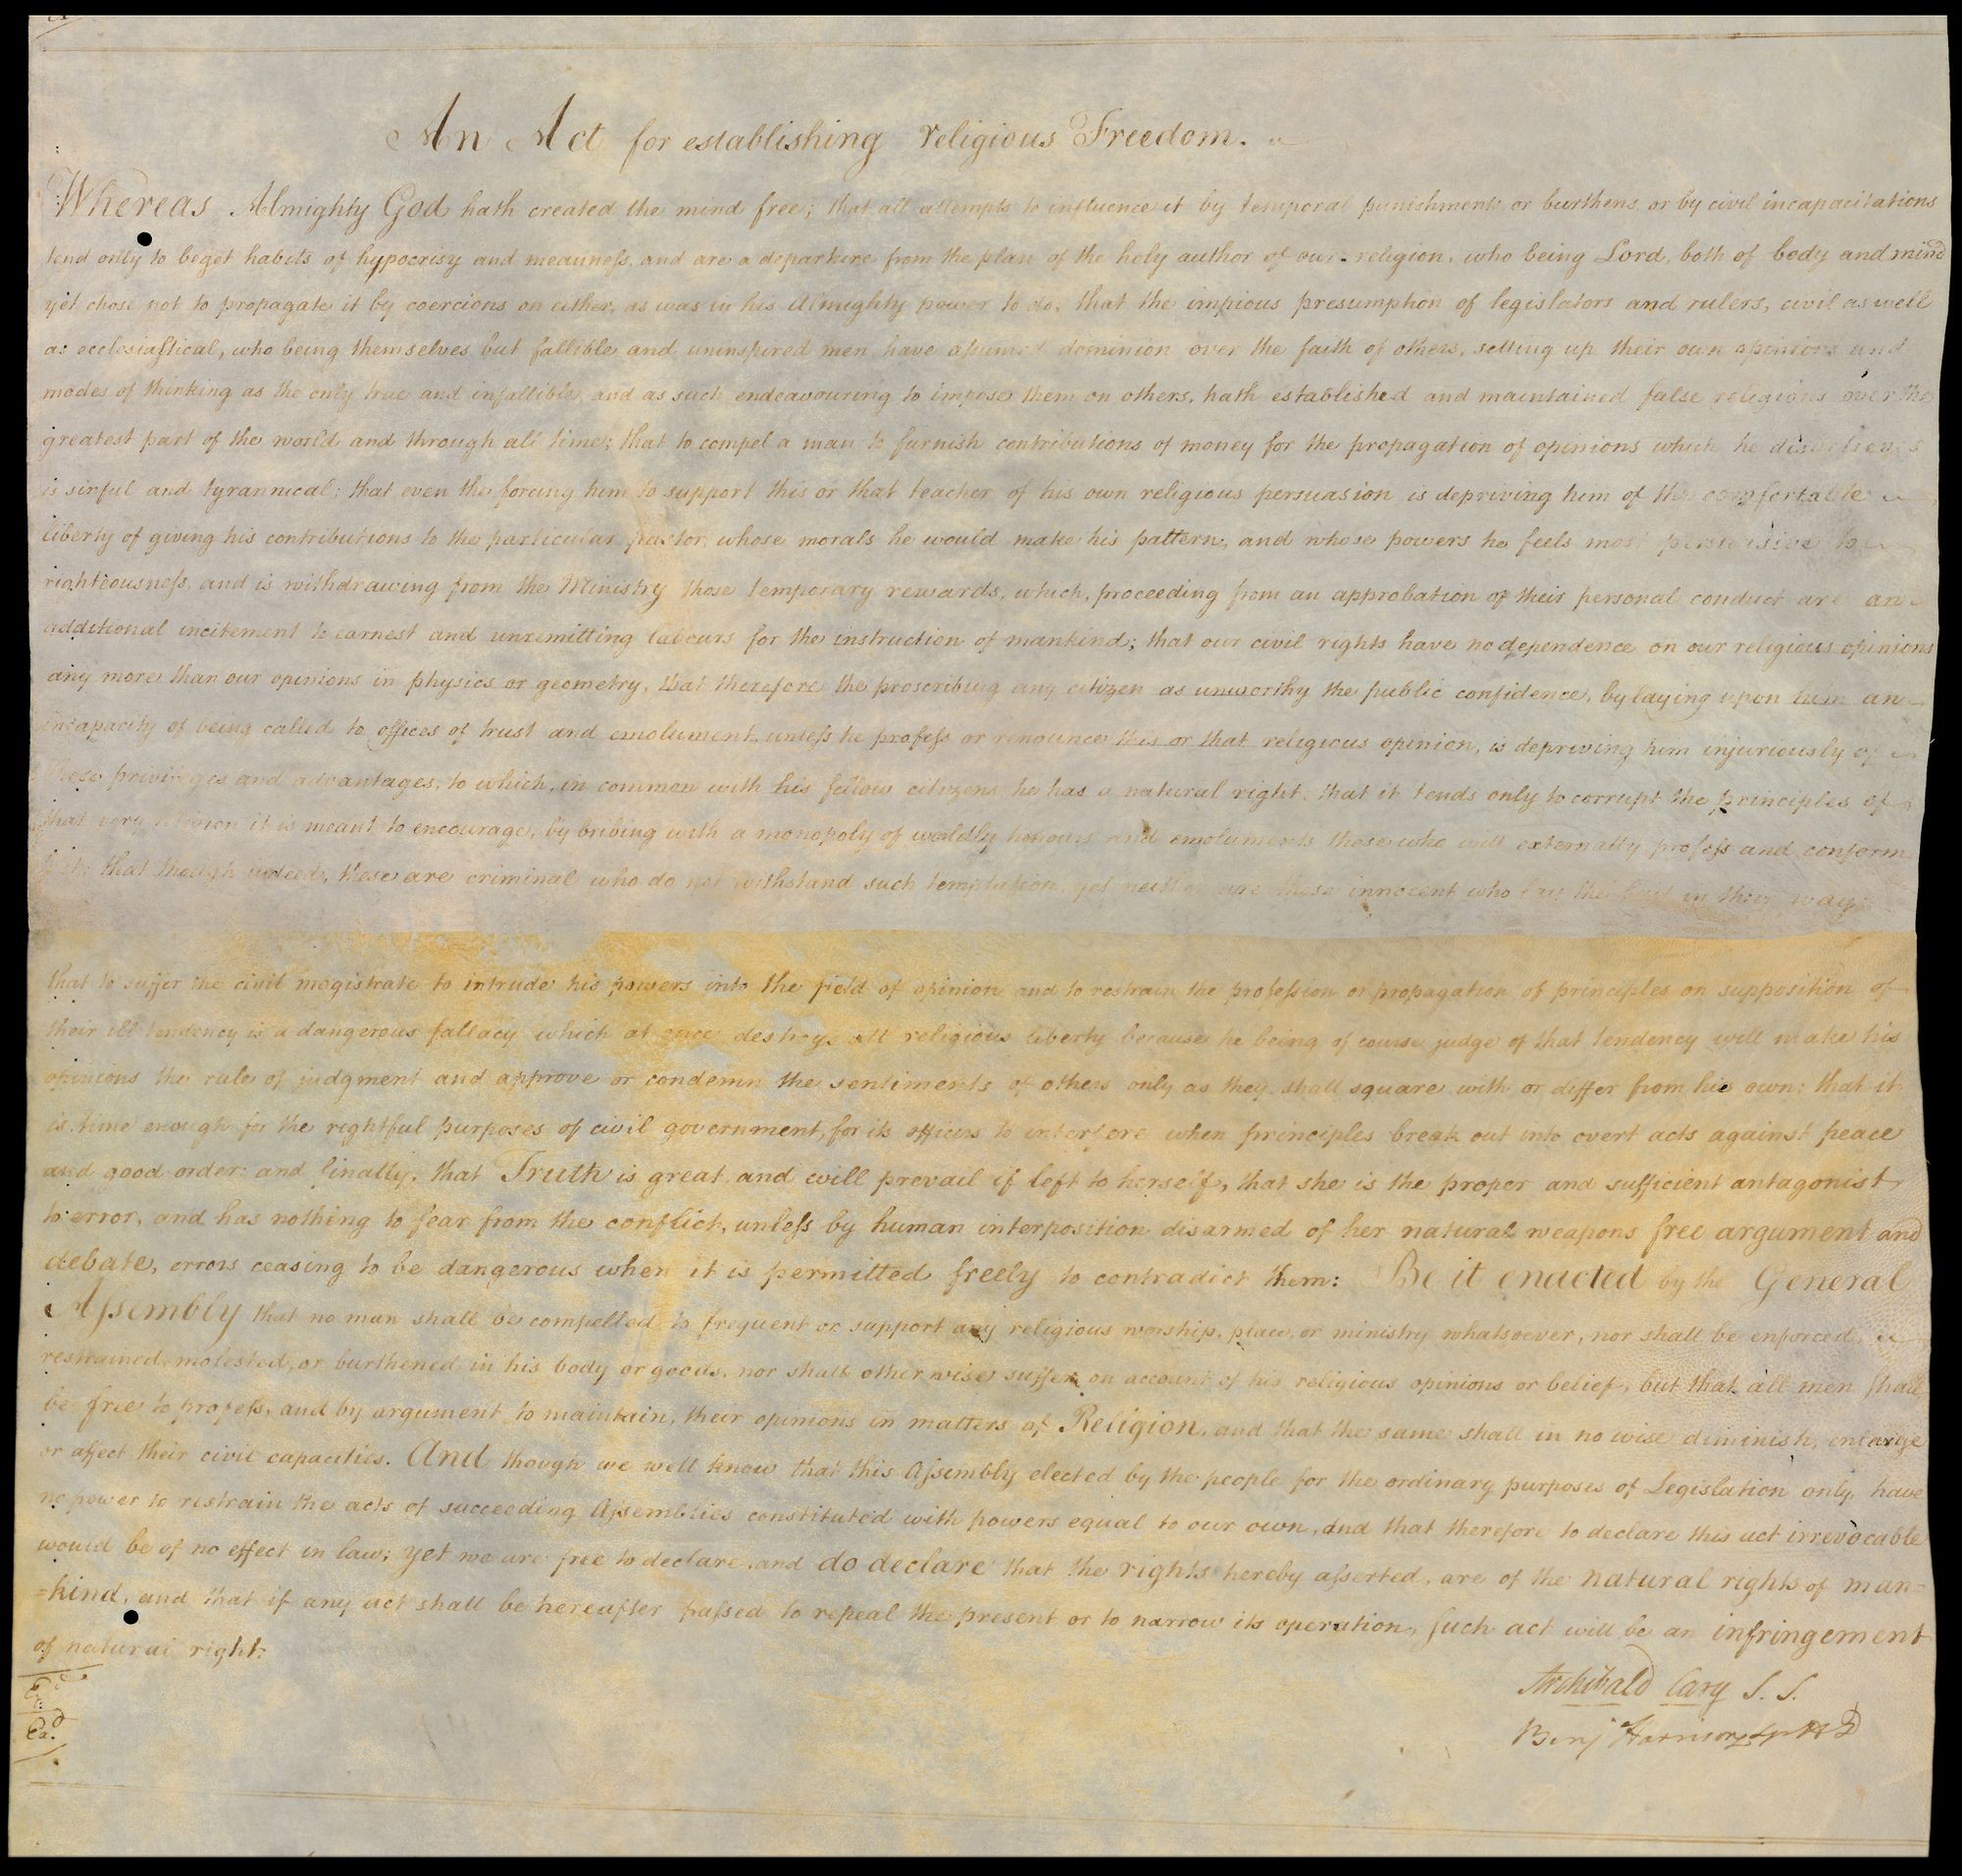 An Act for establishing religious Freedom.
Whereas Almighty God hath created the mind free; that all attempts to influence it by temporal punishments or burthens or by civil incapacitations
tend only to beget habits of hypocrisy and meanness, and are a departure from the plan of the holy author of our religion, who being Lord, both of body and mind
yet chose not to propagate it by coercions on either, as was in his Almighty power to do, that the impious presumption of legislators and rulers, civil as well
as ecclesiastical, who being themselves but fallible and uninspired men have assumed dominion over the faith of others, setting up their own opinions and
modes of thinking as the only true and infallible, and as such endeavouring to impose them on others, hath established and maintained false religions over the
greatest part of the world and through all time; that to compel a man to furnish contributions of money for the propagation of opinions which he disbelieves
is sinful and tyrannical; that even the forcing him to support this or that teacher of his own religious persuasion is depriving him of the comfortable
liberty of giving his contributions to the particular pastor whose morals he would make his pattern, and whose powers he feels most persuasive to
righteousness, and is withdrawing from the Ministry those temporary rewards, which, proceeding from an approbation of their personal conduct are an
additional incitement to earnest and unremitting labours for the instruction of mankind; that our civil rights have no dependence on our religious opinions
any more than our opinions in physics or geometry, that therefore the proscribing any citizen as unworthy the public confidence, by laying upon him an
incapacity of being called to offices of trust and emolument unless he profess or renounce this or that religious opinion, is depriving him injuriously of
those privileges and advantages, to which, in common with his fellow citizens he has a natural right, that it tends only to corrupt the principles of
that very religion it is meant to encourage, by bribing with a monopoly of worldly honours and emoluments those who will externally profess and conform
to it; that though indeed, these are criminal who do not withstand such temptation, yet neither are those innocent who lay the bait in their way;
that to suffer the civil magistrate to intrude his powers into the field of opinion and to restrain the profession or propagation of principles on supposition of
their ill tendency is a dangerous fallacy which at once destroys all religious liberty because he being of course judge of that tendency will make his
opinions the rule of judgment and approve or condemn the sentiments of others only as they shall square with or differ from his own; that it
is time enough for the rightful purposes of civil government, for its officers to interfere when principles break out into overt acts against peace
and good order: and finally, that Truth is great, and will prevail if left to herself, that she is the proper and sufficient antagonist
to error, and has nothing to fear from the conflict, unless by human interposition disarmed of her natural weapons free argument and
debate, errors ceasing to be dangerous when it is permitted freely to contradict them: Be it enacted by the General
Assembly that no man shall be compelled to frequent or support any religious worship, place, or ministry whatsoever, nor shall be enforced,
restrained, molested, or burthened in his body or goods, nor shall otherwise suffer on account of his religious opinions or belief, but that all men shall
be free to profess, and by argument to maintain, their opinions in matters of Religion, and that the same shall in no wise diminish, enlarge
or affect their civil capacities. And though we well know that this Assembly elected by the people for the ordinary purposes of Legislation only, have
no power to restrain the acts of succeeding Assemblies constituted with powers equal to our own, and that therefore to declare this act irrevocable
would be of no effect in law; yet we are free to declare, and do declare that the rights hereby asserted, are of the natural rights of man=
=kind, and that if any act shall be hereafter passed to repeal the present or to narrow its operation, such act will be an infringement
of natural right:
Archibald Cary S. S.
Benj Harrison Sp H D
Ex.d